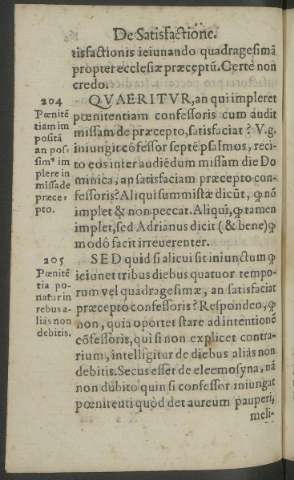 De Satisfactione.
tisfactionis ieiunando quadragesimã
propter ecclesiæ præceptũ. Certè non
credo.
204
Pœnitẽ
tiam im
positã
an pos-
sim⁹ im
plere in
missa de
præce-
pto.
QVAERITVR, an qui impleret
pœnitentiam confessoris cum audit
missam de præcepto, satisfaciat? V.g.
iniungit cõfessor septẽ psalmos, reci-
to eos inter audiẽdum missam die Do
minica, an satisfaciam præcepto con-
fessoris? Aliqui summistæ dicũt, ꝙ nõ
implet & non peccat. Aliqui, ꝙ tamen
implet, sed Adrianus dicit (& bene) ꝙ
modò facit irreuerenter.
205
Pœnitẽ
tia po-
natur in
rebus a-
liàs non
debitis.
SED quid si alicui sit iniunctum ꝙ
ieiunet tribus diebus quatuor tempo-
rum vel quadragesimæ, an satisfaciat
præcepto confessoris? Respondeo, ꝙ
non, quia oportet stare ad intentionẽ
cõfessoris, qui si non explicet contra-
rium, intelligitur de diebus aliàs non
debitis. Secus esset de eleemosyna, nã
non dubito quin si confessor iniungat
pœnitenti quòd det aureum pauperi,
meli-